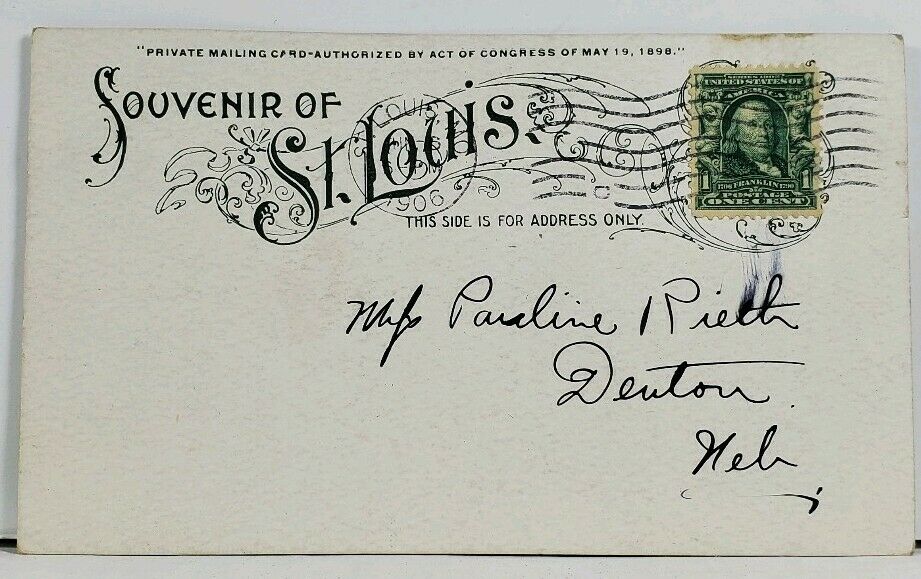 "PRIVATE MAILING CARD-AUTHORIZED BY ACT OF CONGRESS OF MAY 19, 1898."
SOUVENIR OF
ST. LOUIS.
ST. LOUIS
1906
SERIES 1902
UNITED STATES OF
AMERICA
1706 FRANKLIN 1790
1 POSTAGE 1
ONE CENT
THIS SIDE IS FOR ADDRESS ONLY.
Miss Pauline Rieth
Denton
Neb